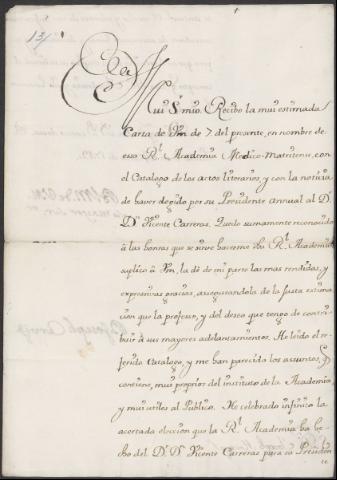 Mui S.r mio. Recibo la mui estimada
Carta de Vm de 7 del presente, en nombre de
essa R.l Academia Medico-Matritense, con
el Catalogo de los actos literarios, y con la noticia
de haver elegido por su Presidente annual al D.r
D.n Vicente Carreras. Quedo sumamente reconocido
à las honras que se sirve hacerme esa R.l Academia
suplico à Vm, la dè de mi parte las mas rendidas, y
expresivas gracias, assegurandola de la justa estima
cion que la professo, y del deseo que tengo de contri
buir à sus mayores adelantamientos. He leido el re
ferido Catalogo, y me han parecido los assuntos, q
contiene, mui proprios del instituto de la Academia
y mui utiles al Publico. He celebrado infinito la
acertada eleccion que la R.l Academia ha he
cho del D.r D. Vicente Carreras para su Presiden
te